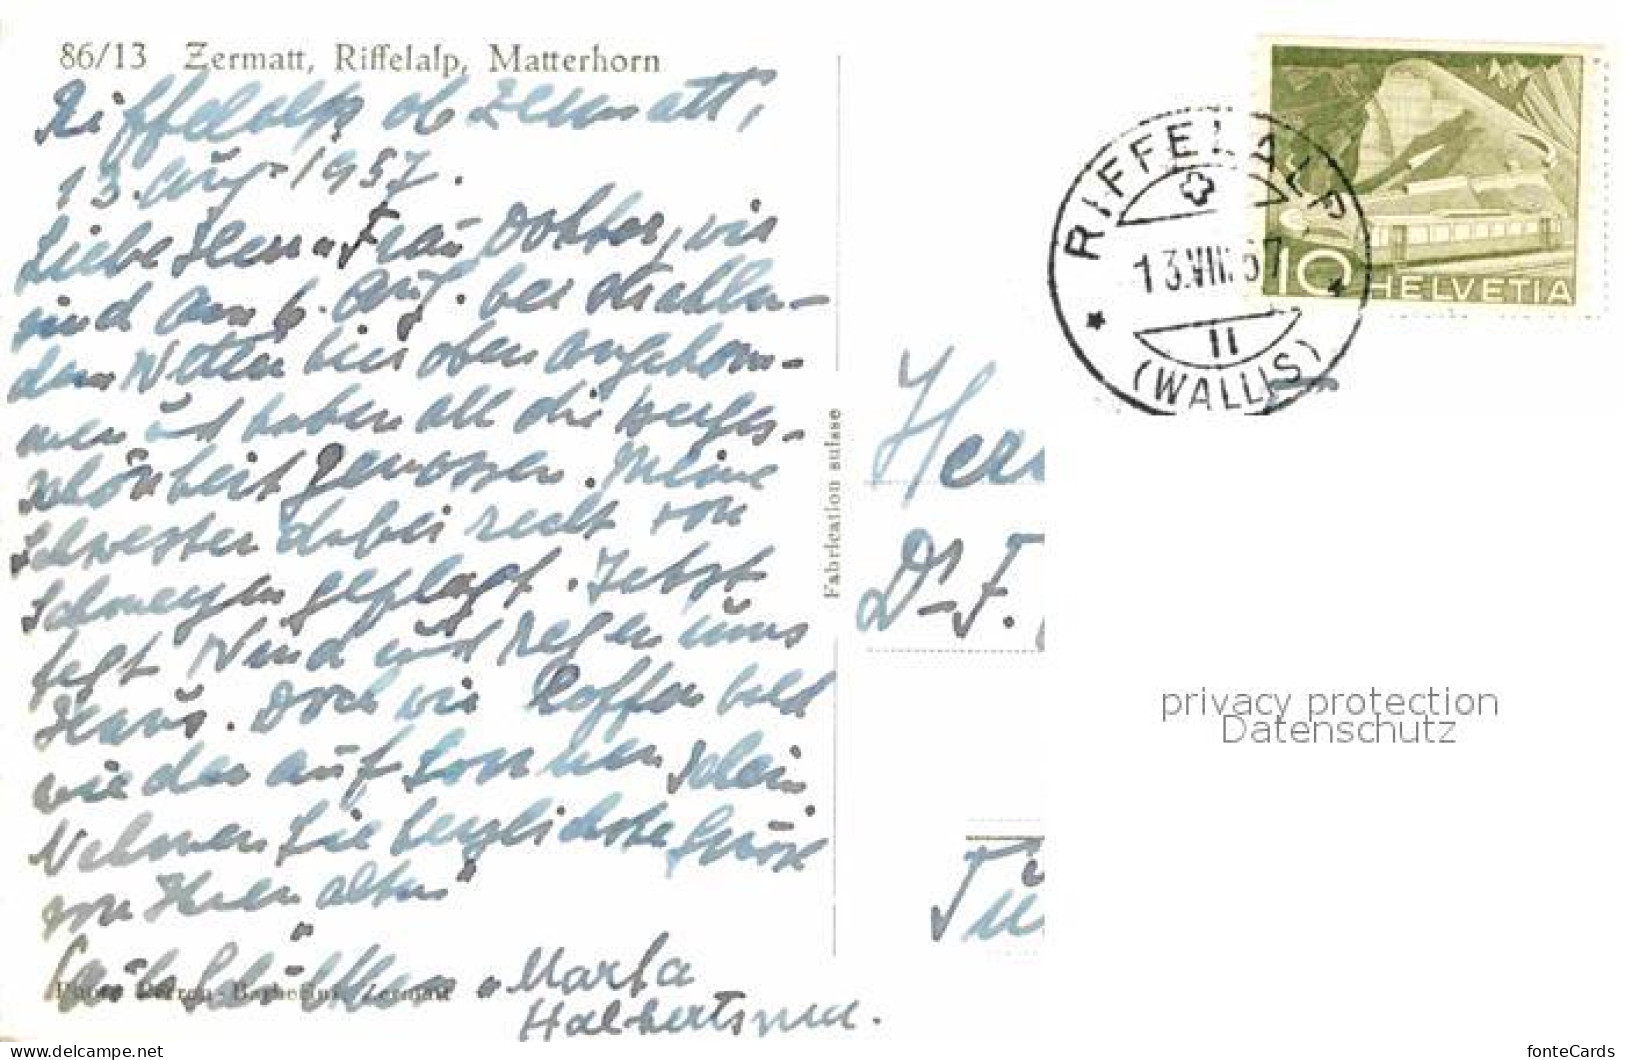 86/13 Zermatt, Riffelalp, Matterhorn
Riffelalp ob Zermatt,
13. Aug. 1957.
Liebe Herr u. Frau Doktor, wir
sind am 6. Aug. bei strahlen-
dem Wetter hier oben angekom-
men und haben all die Berges-
schönheit genossen. Meine
Schwester dabei recht von
Schmerzen geplagt. Jetzt
fegt Wind und Regen ums
Haus. Doch wir hoffen bald
wieder auf Sonnenschein.
Nehmen Sie herzlichste Grüsse
von Ihren alten
Marta
Halbertsma.
Photo Perren-Barberini, Zermatt
Fabrication suisse
RIFFELALP
13.VIII.57
11
(WALLIS)
10 HELVETIA
Herr
Dr. F.
privacy protection
Datenschutz
www.delcampe.net
fonteCards